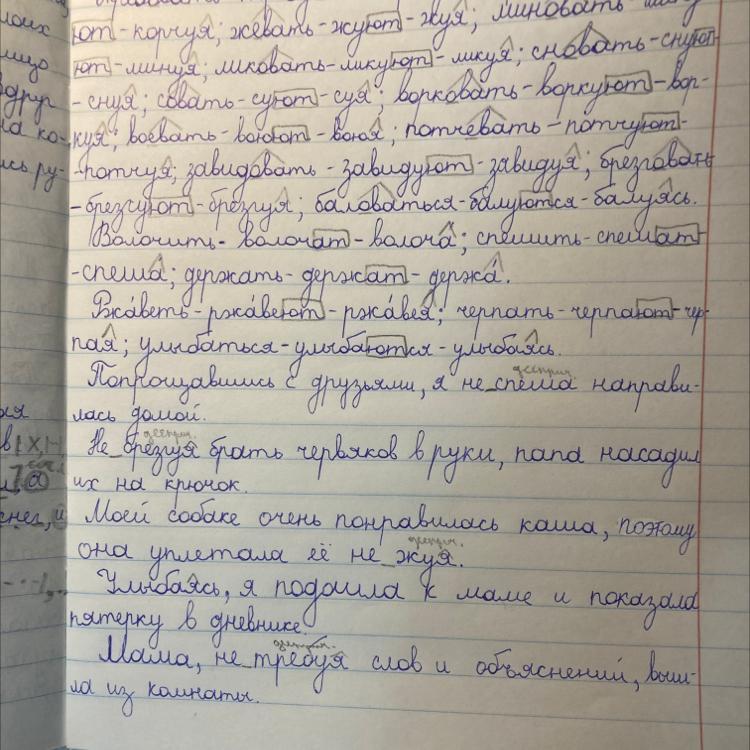 ют-корчуя; жевать-жуют-жуя; миновать-
лоих
ют-минуя; ликовать-ликуют-ликуя; сновать-снуют-
лицо
-снуя; совать-суют-суя; ворковать-воркуют-вор-
вдруг
куя; воевать-воюют-воюя; потчевать-потчуют-
на ко-
-потчуя; завидовать-завидуют-завидуя; брезговать-
сь ру-
-брезгуют-брезгуя; баловаться-балуются-балуясь.
Волочить-волочат-волоча; спешить-спешат-
-спеша; держать-держат-держа.
Ржаветь-ржавеют-ржавея; черпать-черпают-чер-
пая; улыбаться-улыбаются-улыбаясь.
Попрощавшись с друзьями, я не спеша направи-
дееприч.
лась домой.
дееприч.
Не брезгуя брать червяков в руки, папа насадил
их на крючок.
Моей собаке очень понравилась каша, поэтому
снег, и
дееприч.
она уплетала её не жуя.
Улыбаясь, я подошла к маме и показала
пятерку в дневнике.
дееприч.
Мама, не требуя слов и объяснений, выш-
ла из комнаты.